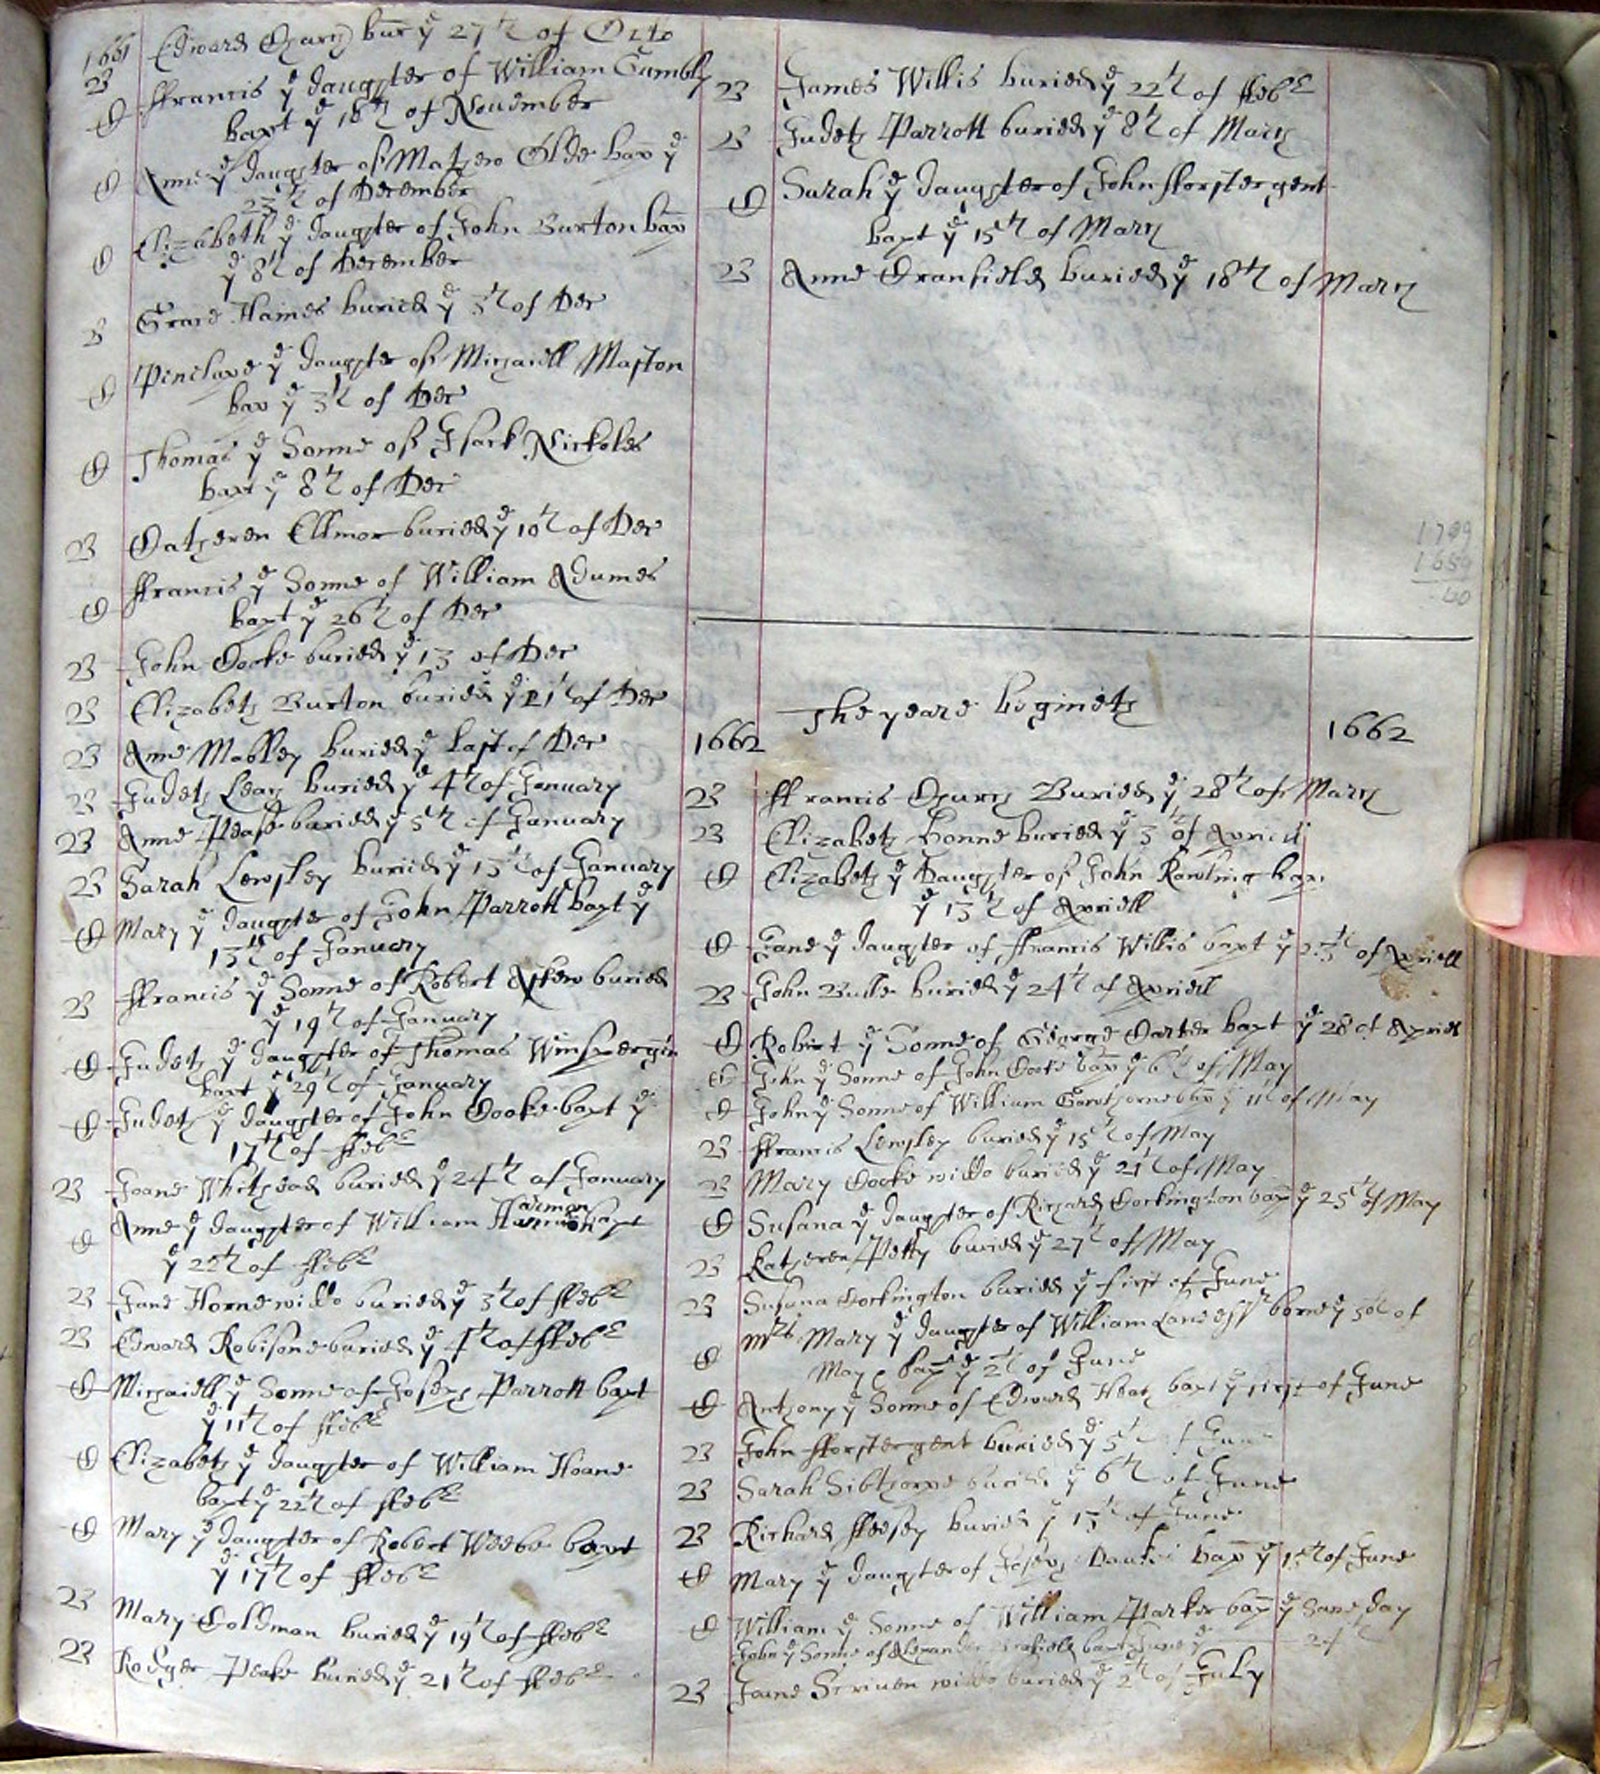 1661 Edward bur ye 27th of Octo
B
C ffrancis ye daughter of William Gumbly
bapt ye 18th of November
C Anne ye daughter of Mathew Olde bap ye
23th of December
C Elizabeth ye daughter of John Burton bap
ye 8th of December
B Grace Haines buried ye 3th of Dec
C Penelope ye daughter of Michaell Maston
bap ye 3th of Dec
C Thomas ye Sonne of Isack Nickoles
bapt ye 8th of Dec
B Catheren Ellmor buried ye 10th of Dec
C ffrancis ye Sonne of William Adames
bapt ye 26th of Dec
B John Cooke buried ye 13 of Dec
B Elizabeth Burton buried ye 21th of Dec
B Anne Mobley buried ye last of Dec
B Judeth Leach buried ye 4th of January
B Anne Pease buried ye 5th of January
B Sarah Lewsley buried ye 13th of January
C Mary ye daughter of John Parrott bapt ye
13th of January
B ffrancis ye Sonne of Robert Askew buried
ye 19th of January
C Judeth ye daughter of Thomas
bapt ye 29th of January
C Judeth ye daughter of John Cooke bapt ye
17th of ffebe
B Joane Whithead buried ye 24th of January
C Anne ye daughter of William Harman bapt
ye 22th of ffebe
B Jane Horne widdo buried ye 3th of ffebe
B Edward Robisone buried ye 4th of ffebe
C Michaell ye Sonne of Joseph Parrott bapt
ye 11th of ffebe
C Elizabeth ye daughter of William Hoane
bapt ye 22th of ffebe
C Mary ye daughter of Robert Weebe bapt
ye 17th of ffebe
B Mary Coldman buried ye 19th of ffebe
B Rodger Peake buried ye 21th of ffebe
B James Willis buried ye 22th of ffebe
B Judeth Parrott buried ye 8th of March
C Sarah ye daughter of John fforster gent
bapt ye 15th of March
B Anne Cranfield buried ye 18th of March
1799
1659
The yeare begineth
1662 1662
B ffrancis Church Buried ye 28th of March
B Elizabeth Bonne buried ye 3th of Aprill
C Elizabeth ye Daughter of John Rawling bap
ye 13th of Aprill
C Jane ye daughter of ffrancis Willis bapt ye 23th of Aprill
B John Bulle buried ye 24th of Aprill
C Robert ye Sonne of George Carter bapt ye 28 of Aprill
C John ye Sonne of John Cooke bap ye 6th of May
C John ye Sonne of William Gawthorne bap ye 11th of May
B ffrancis Lewsley buried ye 15th of May
B Mary Cooke widdo buried ye 21th of May
C Susana ye daughter of Richard Cockington bap ye 25th of May
B Katheren Petty buried ye 27th of May
B Susana Cockington buried ye first of June
C Mrs Mary ye daughter of William Lane Esqr borne ye 30th of
May bap ye 2th of June
C Anthony ye Sonne of Edward Hoath bapt ye first of June
B John fforster gent buried ye 5th of June
B Sarah Sibthorpe buried ye 6th of June
B Richard ffeesey buried ye 13th of June
C Mary ye daughter of Joseph bap ye 15th of June
C William ye Sonne of William Parker bap ye Same day
John ye Sonne of Alexander bapt June ye 24th
B Joane Scriven widdo buried ye 2th of July